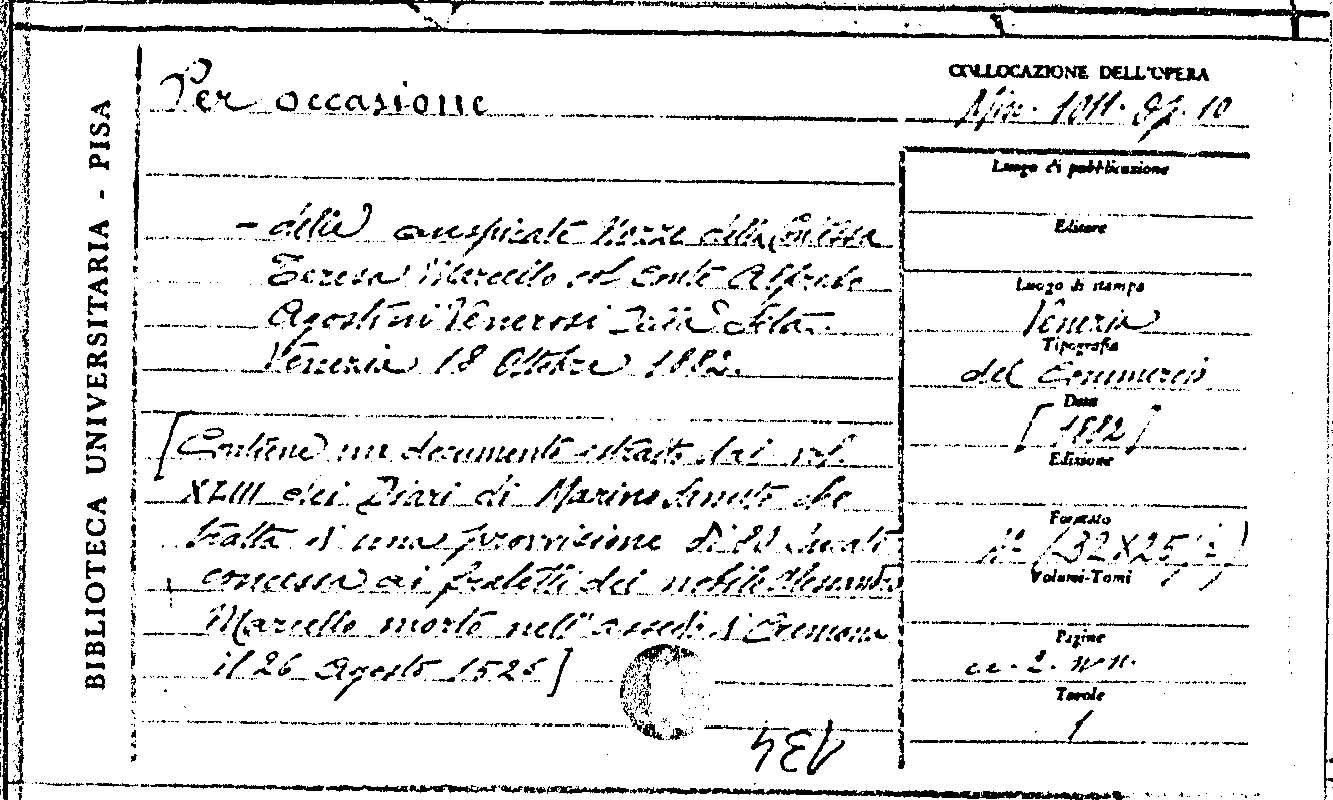 BIBLIOTECA UNIVERSITARIA - PISA
Per occasione
- delle auspicate Nozze della Contessa
Teresa Marcello col Conte Alfredo
Agostini Venerosi Della Seta.
Venezia 18 Ottobre 1882.
[Contiene un documento estratto dai vol.
XLIII dei Diari di Marino Sanuto che
tratta d'una provvisione di Ducati
concessa ai fratelli del nobile Alessandro
Marcello morto nell'assedio di Cremona
il 26 Agosto 1526]
COLLOCAZIONE DELL'OPERA
Misc. 1011. Op. 10
Luogo di pubblicazione
Editore
Luogo di stampa
Venezia
Tipografia
del Commercio
Data
[1882]
Edizione
Formato
(32X25,
Volumi-Tomi
Pagine
cc. 2. n n.
Tavole
1